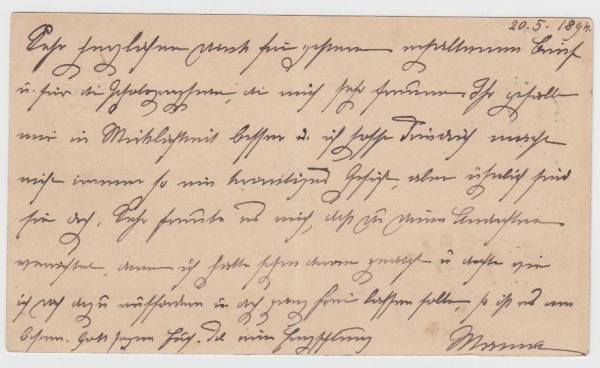 20.5. 1894.
Sehr herzlichen Dank für gestern erhaltenen Brief
u. für die Photographieen, die mich sehr freuen. Ihr gefallt
mir in Wirklichkeit besser u. ich hoffe Friedrich macht
nicht immer so ein Gesicht, aber ähnlich sind
sie doch. Sehr freute es mich, daß Du Deine
denn ich hatte schon daran gedacht u. dachte wie
ich Dich dazu auffordern u. doch ganz frei lassen sollte, so ist es am
besten. Gott segne Euch.
Mama